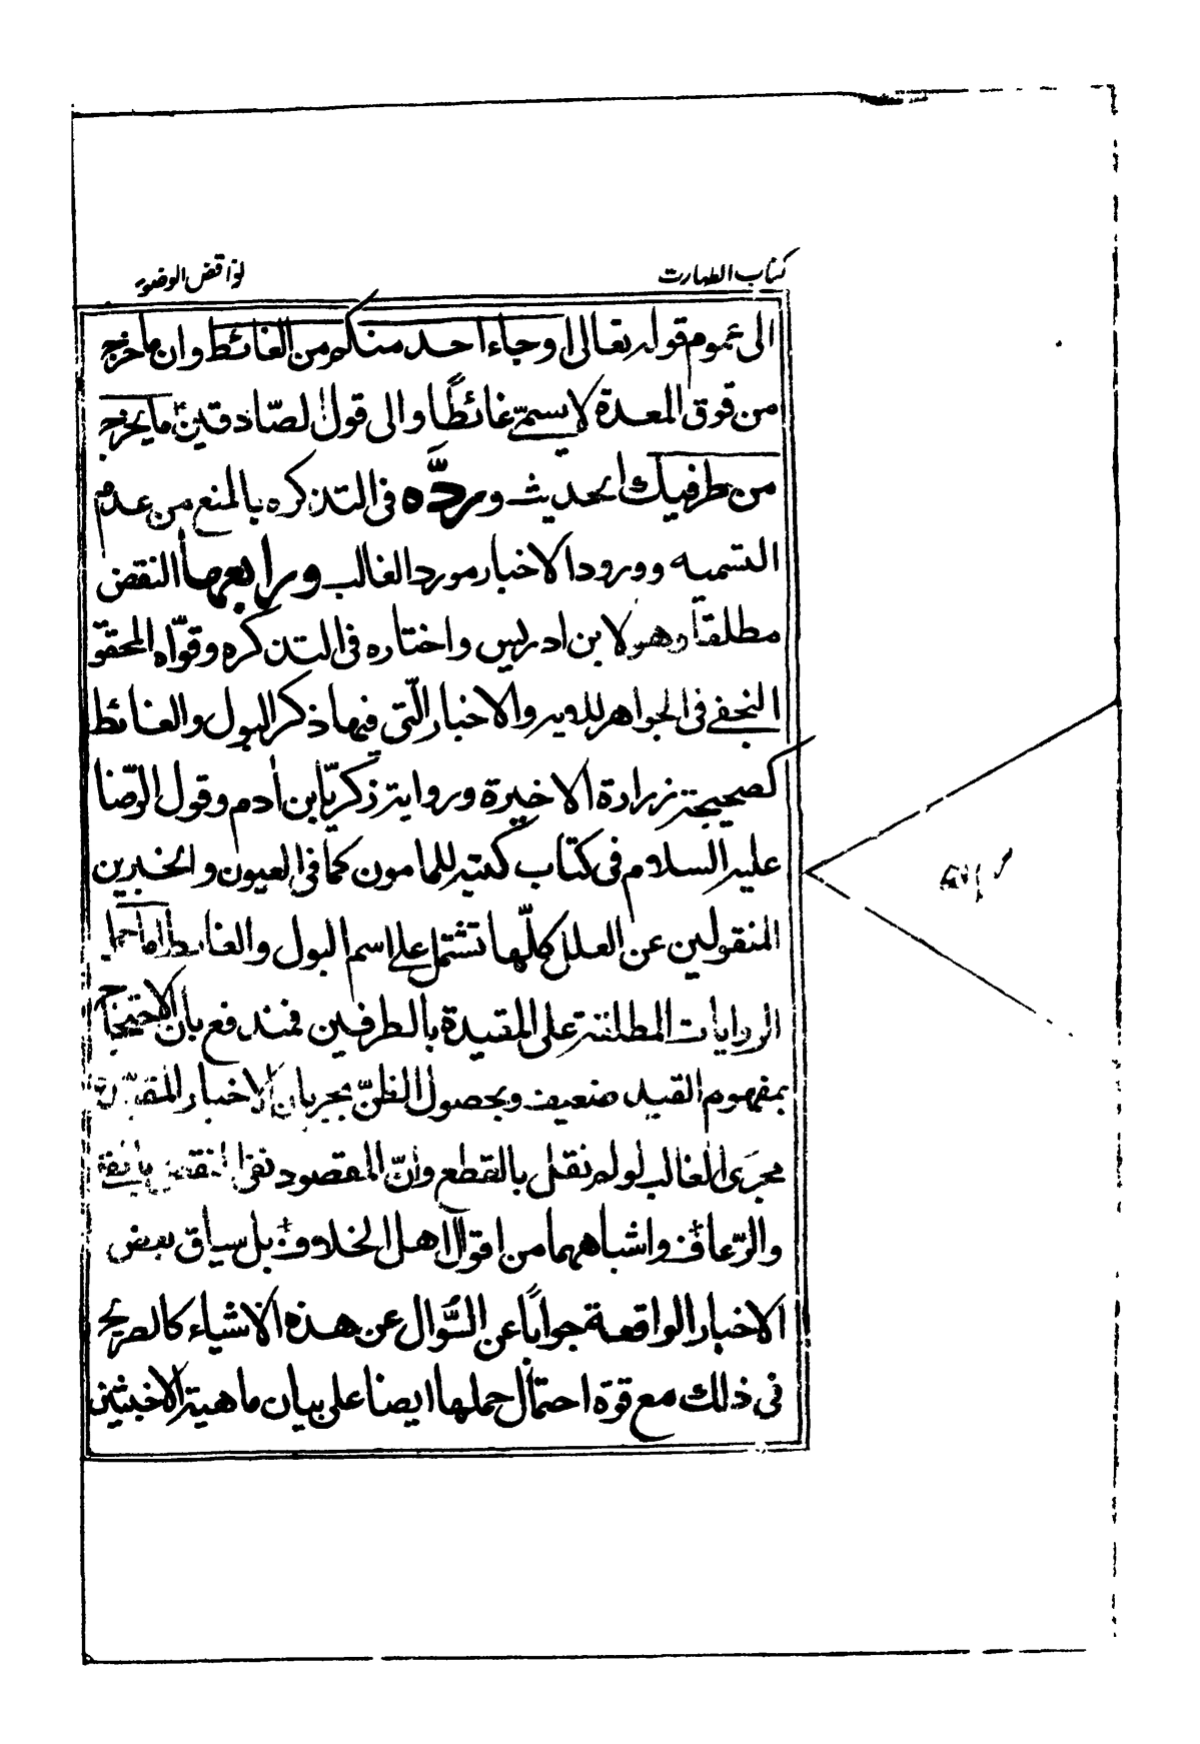 كتاب الطهارت
نواقض الوضوء
الى عموم قوله تعالى او جاء احد منكم من الغائط وان ما خرج
من فوق المعدة لا يسمّى غائطًا والى قول الصّادقينؑ ما يخرج
من طرفيك الحديث وردَّه فى التذكره بالمنع من عدم
التسميه وورود الاخبار مورد الغالب ورابعها النقض
مطلقا وهو لابن ادريس واختاره فى التذكره وقوّاه المحقق
النجفى فى الجواهر للاية والاخبار الّتى فيها ذكر البول والغائط
كصحيحة زرارة الاخيرة ورواية زكريّا بن ادم وقول الرّضا
عليه السلام فى كتاب كتبه للمامون كما فى العيون والخبرين
المنقولين عن العلل كلّها تشتمل على اسم البول والغائط اما حمل
الروايات المطلقة على المقيدة بالطرفين فمندفع بان الاحتجاج
بمفهوم القيد ضعيف وبحصول الظنّ بجريان الاخبار المقيّدة
مجرَى الغالب لو لم نقل بالقطع وانّ المقصود نفى النقض بالقئ
والرّعاف واشباههما من اقوال اهل الخلاف بل سياق بعض
الاخبار الواقعة جوابًا عن السُّوال عن هذه الاشياء كالصريح
فى ذلك مع قوة احتمال حملها ايضا على بيان ماهية الاخبثين